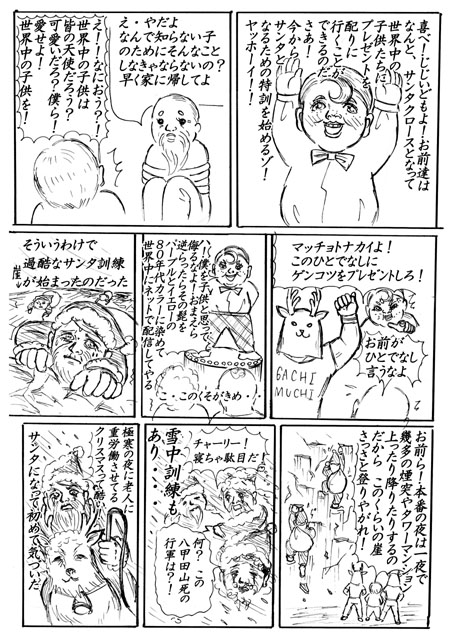 喜べ！じじいどもよ！お前達は
なんと、サンタクロースとなって
世界中の
子供たちに
プレゼントを
配りに
行くことが
できるのだ
さあ！
今から
サンタと
なるための特訓を始めるゾ！
ヤッホーイ！！
え・やだよ
なんで知らない子
のためにそんなこと
しなきゃならないの？
早く家に帰してよ
え？！なにおう？！
世界中の子供は
皆の天使だろう？
可愛いだろ？僕ら！
愛せよ！
世界中の子供を！
マッチョトナカイよ！
このひとでなしに
ゲンコツをプレゼントしろ！
お前が
ひとでなし
言うなよ
GACHI
MUCHI
ハ！僕を子供と思って、
侮るなよ！おまえら
逆らったらその髭を
パープルとイエローの
８０年代カラーに染めて
世界中にネットで配信してやる
こ・このくそがきめ・・
そういうわけで
過酷なサンタ訓練
が始まったのだった
崖
お前ら！本番の夜は一夜で
幾多の煙突やタワーマンション
上ったり降りたりするの
だから　このくらいの崖
さっさと登りやがれ！
チャーリー！
寝ちゃ駄目だ！
雪中訓練も
あり・・
何？この
八甲田山死の
行軍は？！
極寒の夜に老人に
重労働させてる
クリスマスって酷い
サンタになって初めて気づいた